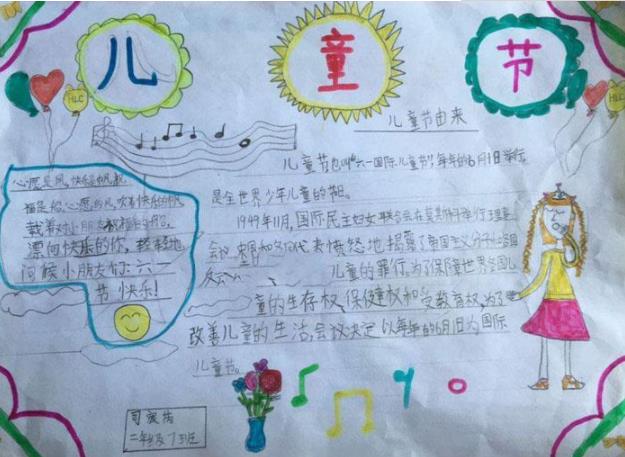 儿童节
HLC
HLC
儿童节由来
儿童节也叫"六一国际儿童节",每年的6月1日举行,
是全世界少年儿童的节日。
1949年11月,国际民主妇女联合会在莫斯科举行理事
会议,中国和各国代表愤怒地揭露了帝国主义分子
儿童的罪行,为了保障世界各国儿
童的生存权、保健权和受教育权,为了
改善儿童的生活,会议决定以每年的6月1日为国际
儿童节。
心愿是风,快乐是帆,
福是船。心愿的风,吹着快乐的帆,
载着对小朋友祝福的船,
漂向快乐的你,轻轻地
问候小朋友们:六一
节快乐!
二年级7班